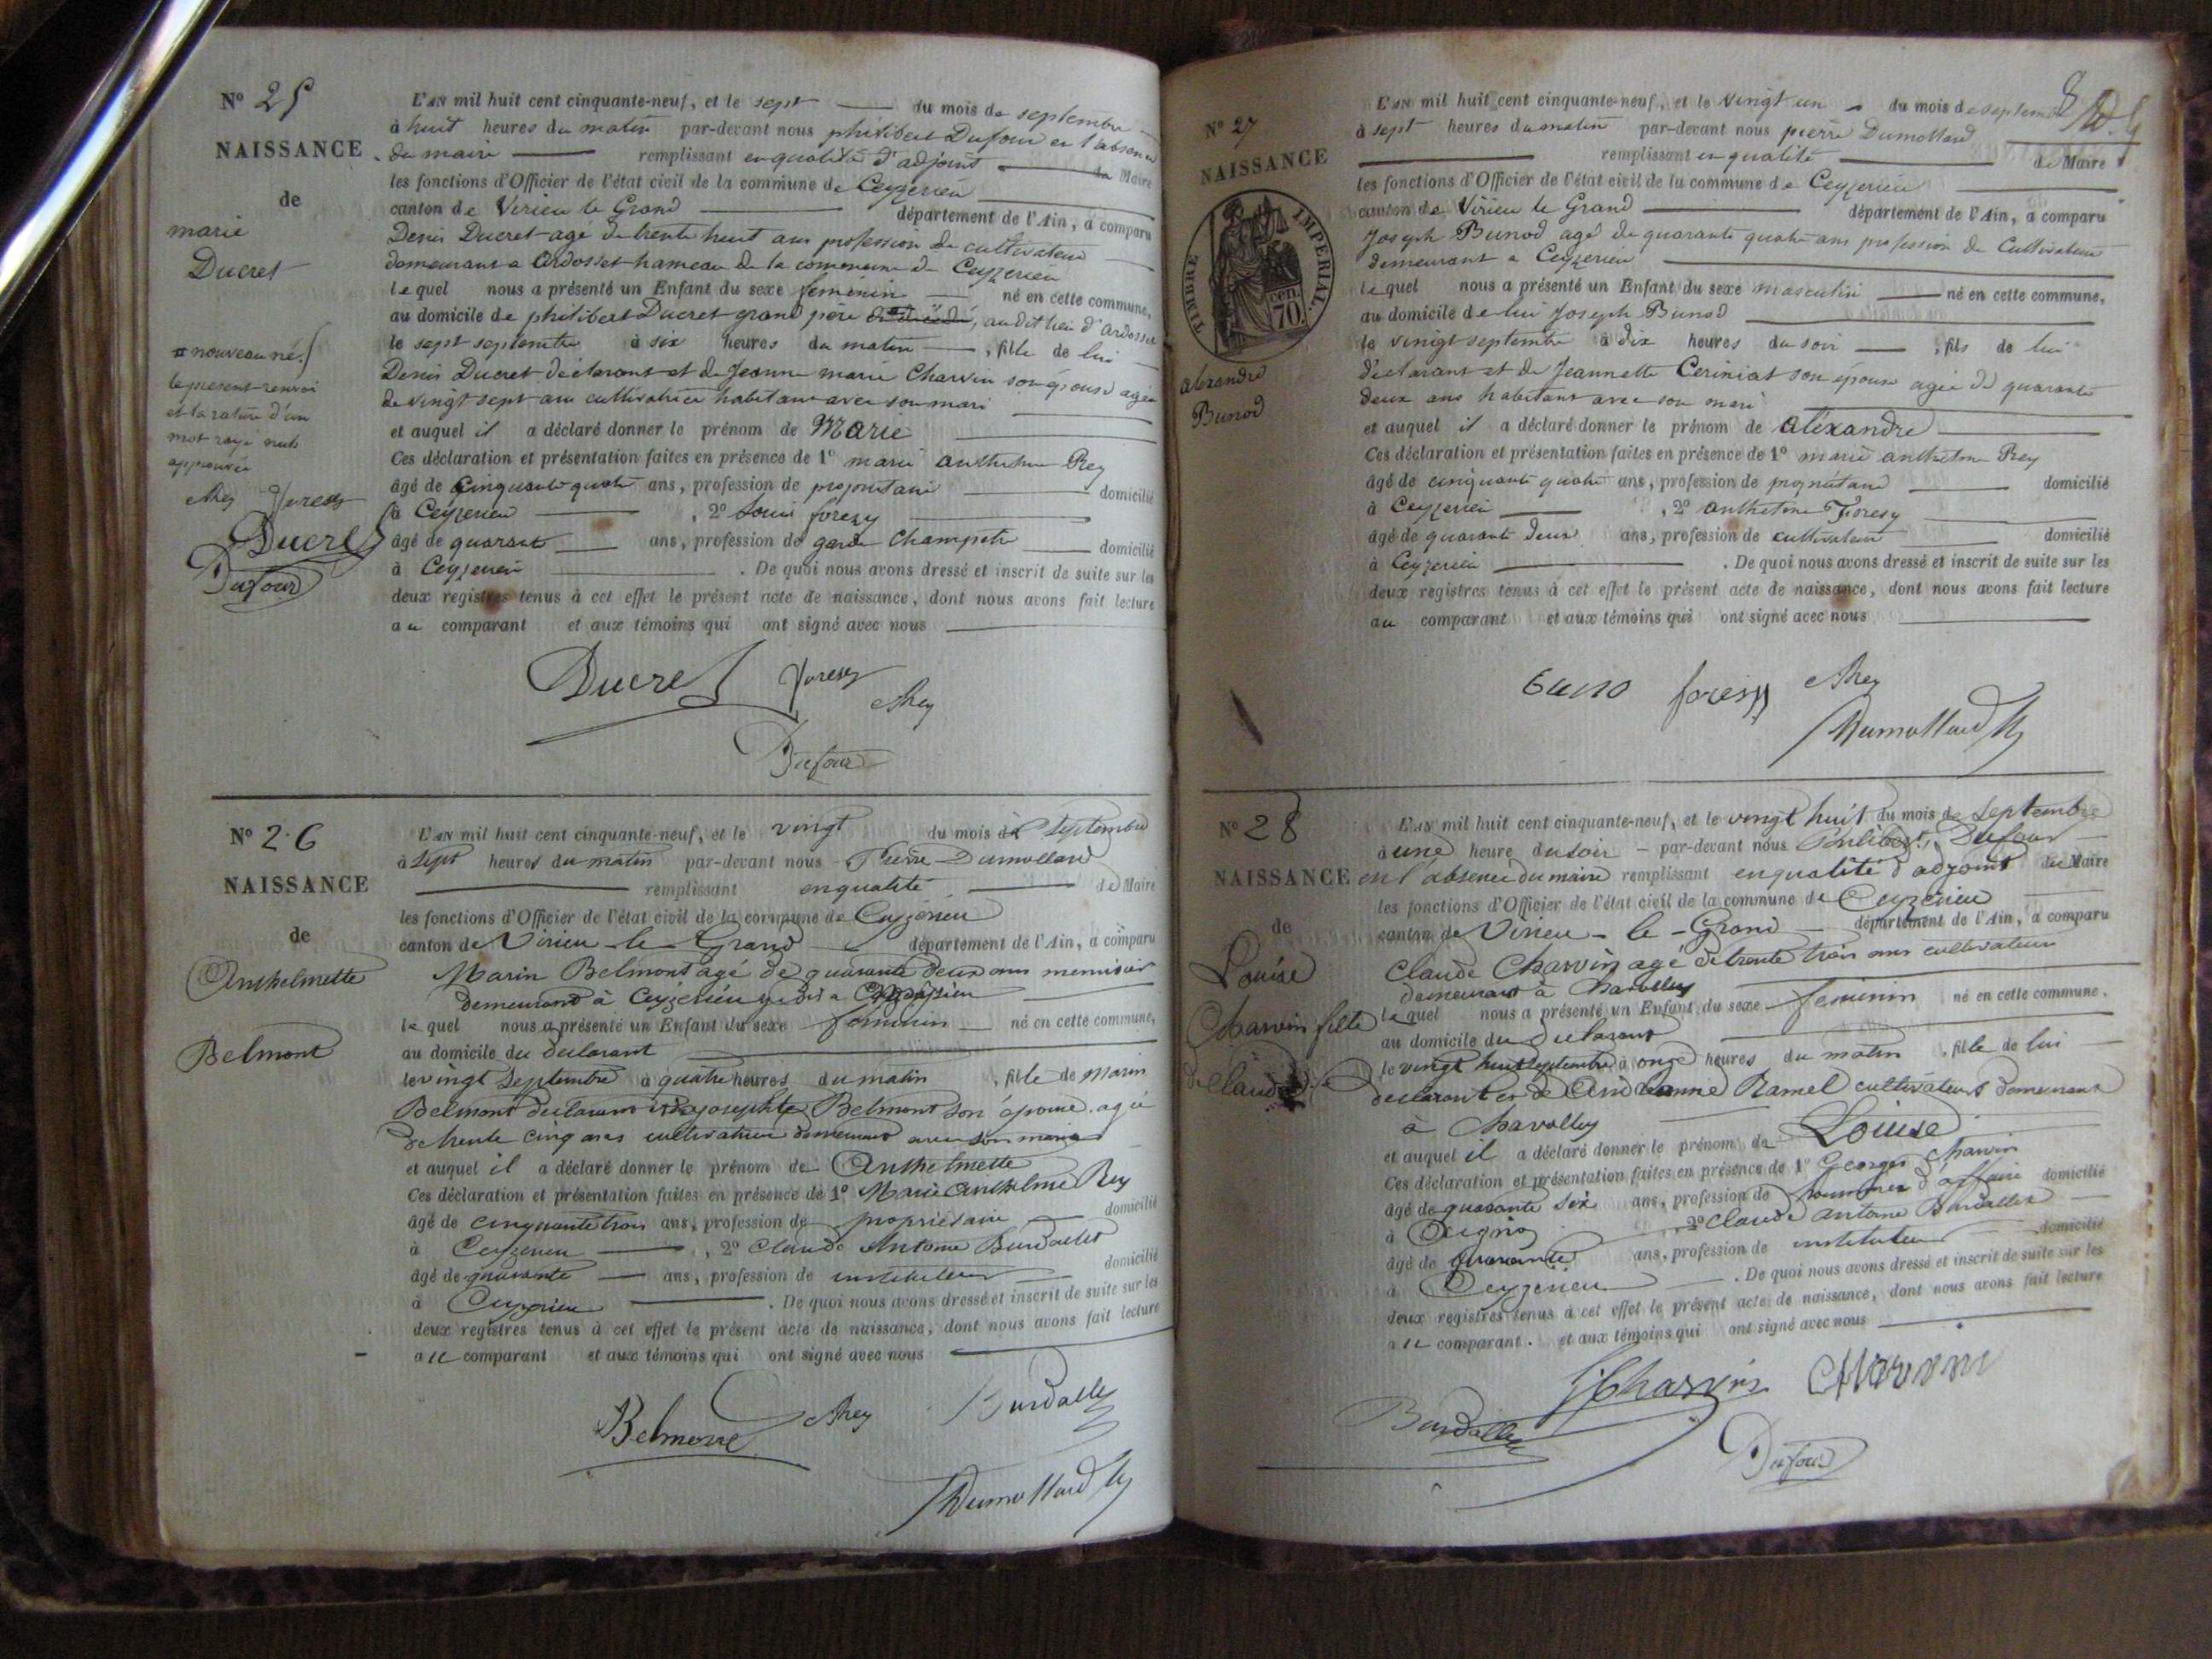 Nº 25
NAISSANCE
de
marie
Ducret
nouveau né.
le present renvoi
et la rature d'un
mot rayé nuls
approuvés
Rey Joresy
Ducret
Dufour
L'AN mil huit cent cinquante-neuf, et le sept du mois de septembre
à huit heures du matin par-devant nous philibert Dufour en l'absence
du maire remplissant en qualité d'adjoint du Maire
les fonctions d'Officier de l'état civil de la commune de Ceyzerieu
canton de Virieu le Grand département de l'Ain, a comparu
Denis Ducret agé de trente huit ans profession de cultivateur
demeurant a Ardosset hameau de la commune de Ceyzerieu
lequel nous a présenté un Enfant du sexe femenin né en cette commune,
au domicile de philibert Ducret grand père, audit lieu d'Ardosset
le sept septembre à six heures du matin, fille de lui
Denis Ducret déclarant et de Jeanne marie Charvin son épouse agée
de vingt sept ans cultivatrice habitant avec son mari
et auquel il a déclaré donner le prénom de Marie
Ces déclaration et présentation faites en présence de 1º marie anthelme Rey
âgé de Cinquante quatre ans, profession de propriétaire domicilié
à Ceyzerieu, 2º Louis foresy
âgé de quarante ans, profession de garde Champetre domicilié
à Ceyzerieu. De quoi nous avons dressé et inscrit de suite sur les
deux registres tenus à cet effet le présent acte de naissance, dont nous avons fait lecture
au comparant et aux témoins qui ont signé avec nous
Ducret Joresy
Rey
Dufour
Nº 26
NAISSANCE
de
Anthelmette
Belmont
L'AN mil huit cent cinquante-neuf, et le vingt du mois de Septembre
à sept heures du matin par-devant nous Pierre Dumollard
remplissant en qualité de Maire
les fonctions d'Officier de l'état civil de la commune de Ceyzérieu
canton de Virieu-le-Grand département de l'Ain, a comparu
Marin Belmont agé de quarante deux ans menuisier
demeurant à Ceyzérieu
lequel nous a présenté un Enfant du sexe feminin né en cette commune,
au domicile du déclarant
le vingt Septembre à quatre heures du matin, fille de Marin
Belmont déclarant et de josephte Belmont son épouse agée
de trente cinq ans cultivatrice demeurant avec son mari
et auquel il a déclaré donner le prénom de Anthelmette
Ces déclaration et présentation faites en présence de 1º Marie Anthelme Rey
âgé de cinquante trois ans, profession de propriétaire domicilié
à Ceyzerieu, 2º Claude Antoine Burdallet
âgé de quarante ans, profession de instituteur domicilié
à Ceyzerieu. De quoi nous avons dressé et inscrit de suite sur les
deux registres tenus à cet effet le présent acte de naissance, dont nous avons fait lecture
au comparant et aux témoins qui ont signé avec nous
Belmont Rey Burdallet
Dumollard
8
Nº 27
NAISSANCE
TIMBRE IMPERIAL
70 cen.
alexandre
Bunod
L'AN mil huit cent cinquante-neuf, et le vingt un du mois de septembre
à sept heures du matin par-devant nous pierre Dumollard
remplissant en qualité de Maire
les fonctions d'Officier de l'état civil de la commune de Ceyzerieu
canton de Virieu le Grand département de l'Ain, a comparu
Joseph Bunod agé de quarante quatre ans profession de Cultivateur
demeurant a Ceyzerieu
lequel nous a présenté un Enfant du sexe masculin né en cette commune,
au domicile de lui Joseph Bunod
le vingt septembre à dix heures du soir, fils de lui
déclarant et de Jeannette Ceriniat son épouse agée de quarante
deux ans habitant avec son mari
et auquel il a déclaré donner le prénom de alexandre
Ces déclaration et présentation faites en présence de 1º marie anthelme Rey
âgé de cinquante quatre ans, profession de propriétaire domicilié
à Ceyzerieu, 2º anthelme Foresy
âgé de quarante deux ans, profession de cultivateur domicilié
à Ceyzerieu. De quoi nous avons dressé et inscrit de suite sur les
deux registres tenus à cet effet le présent acte de naissance, dont nous avons fait lecture
au comparant et aux témoins qui ont signé avec nous
foresy Rey
Dumollard
Nº 28
NAISSANCE
de
Louise
Charvin fille
de Claude
L'AN mil huit cent cinquante-neuf, et le vingt huit du mois de Septembre
à une heure du soir par-devant nous Philibert Dufour
en l'absence du maire remplissant en qualité d'adjoint du Maire
les fonctions d'Officier de l'état civil de la commune de Ceyzerieu
canton de Virieu-le-Grand département de l'Ain, a comparu
Claude Charvin agé de trente trois ans cultivateur
demeurant à Chavolley
lequel nous a présenté un Enfant du sexe feminin né en cette commune.
au domicile du déclarant
le vingt huit septembre à onze heures du matin, fille de lui
déclarant et de Ramel cultivateurs demeurant
à Chavolley
et auquel il a déclaré donner le prénom de Louise
Ces déclaration et présentation faites en présence de 1º Georges Charvin
âgé de quarante six ans, profession de hommes d'affaire domicilié
à 2º Claude Antoine Burdallet
âgé de quarante ans, profession de instituteur domicilié
à Ceyzerieu. De quoi nous avons dressé et inscrit de suite sur les
deux registres tenus à cet effet le présent acte de naissance, dont nous avons fait lecture
au comparant. et aux témoins qui ont signé avec nous
Burdallet Charvin
Dufour